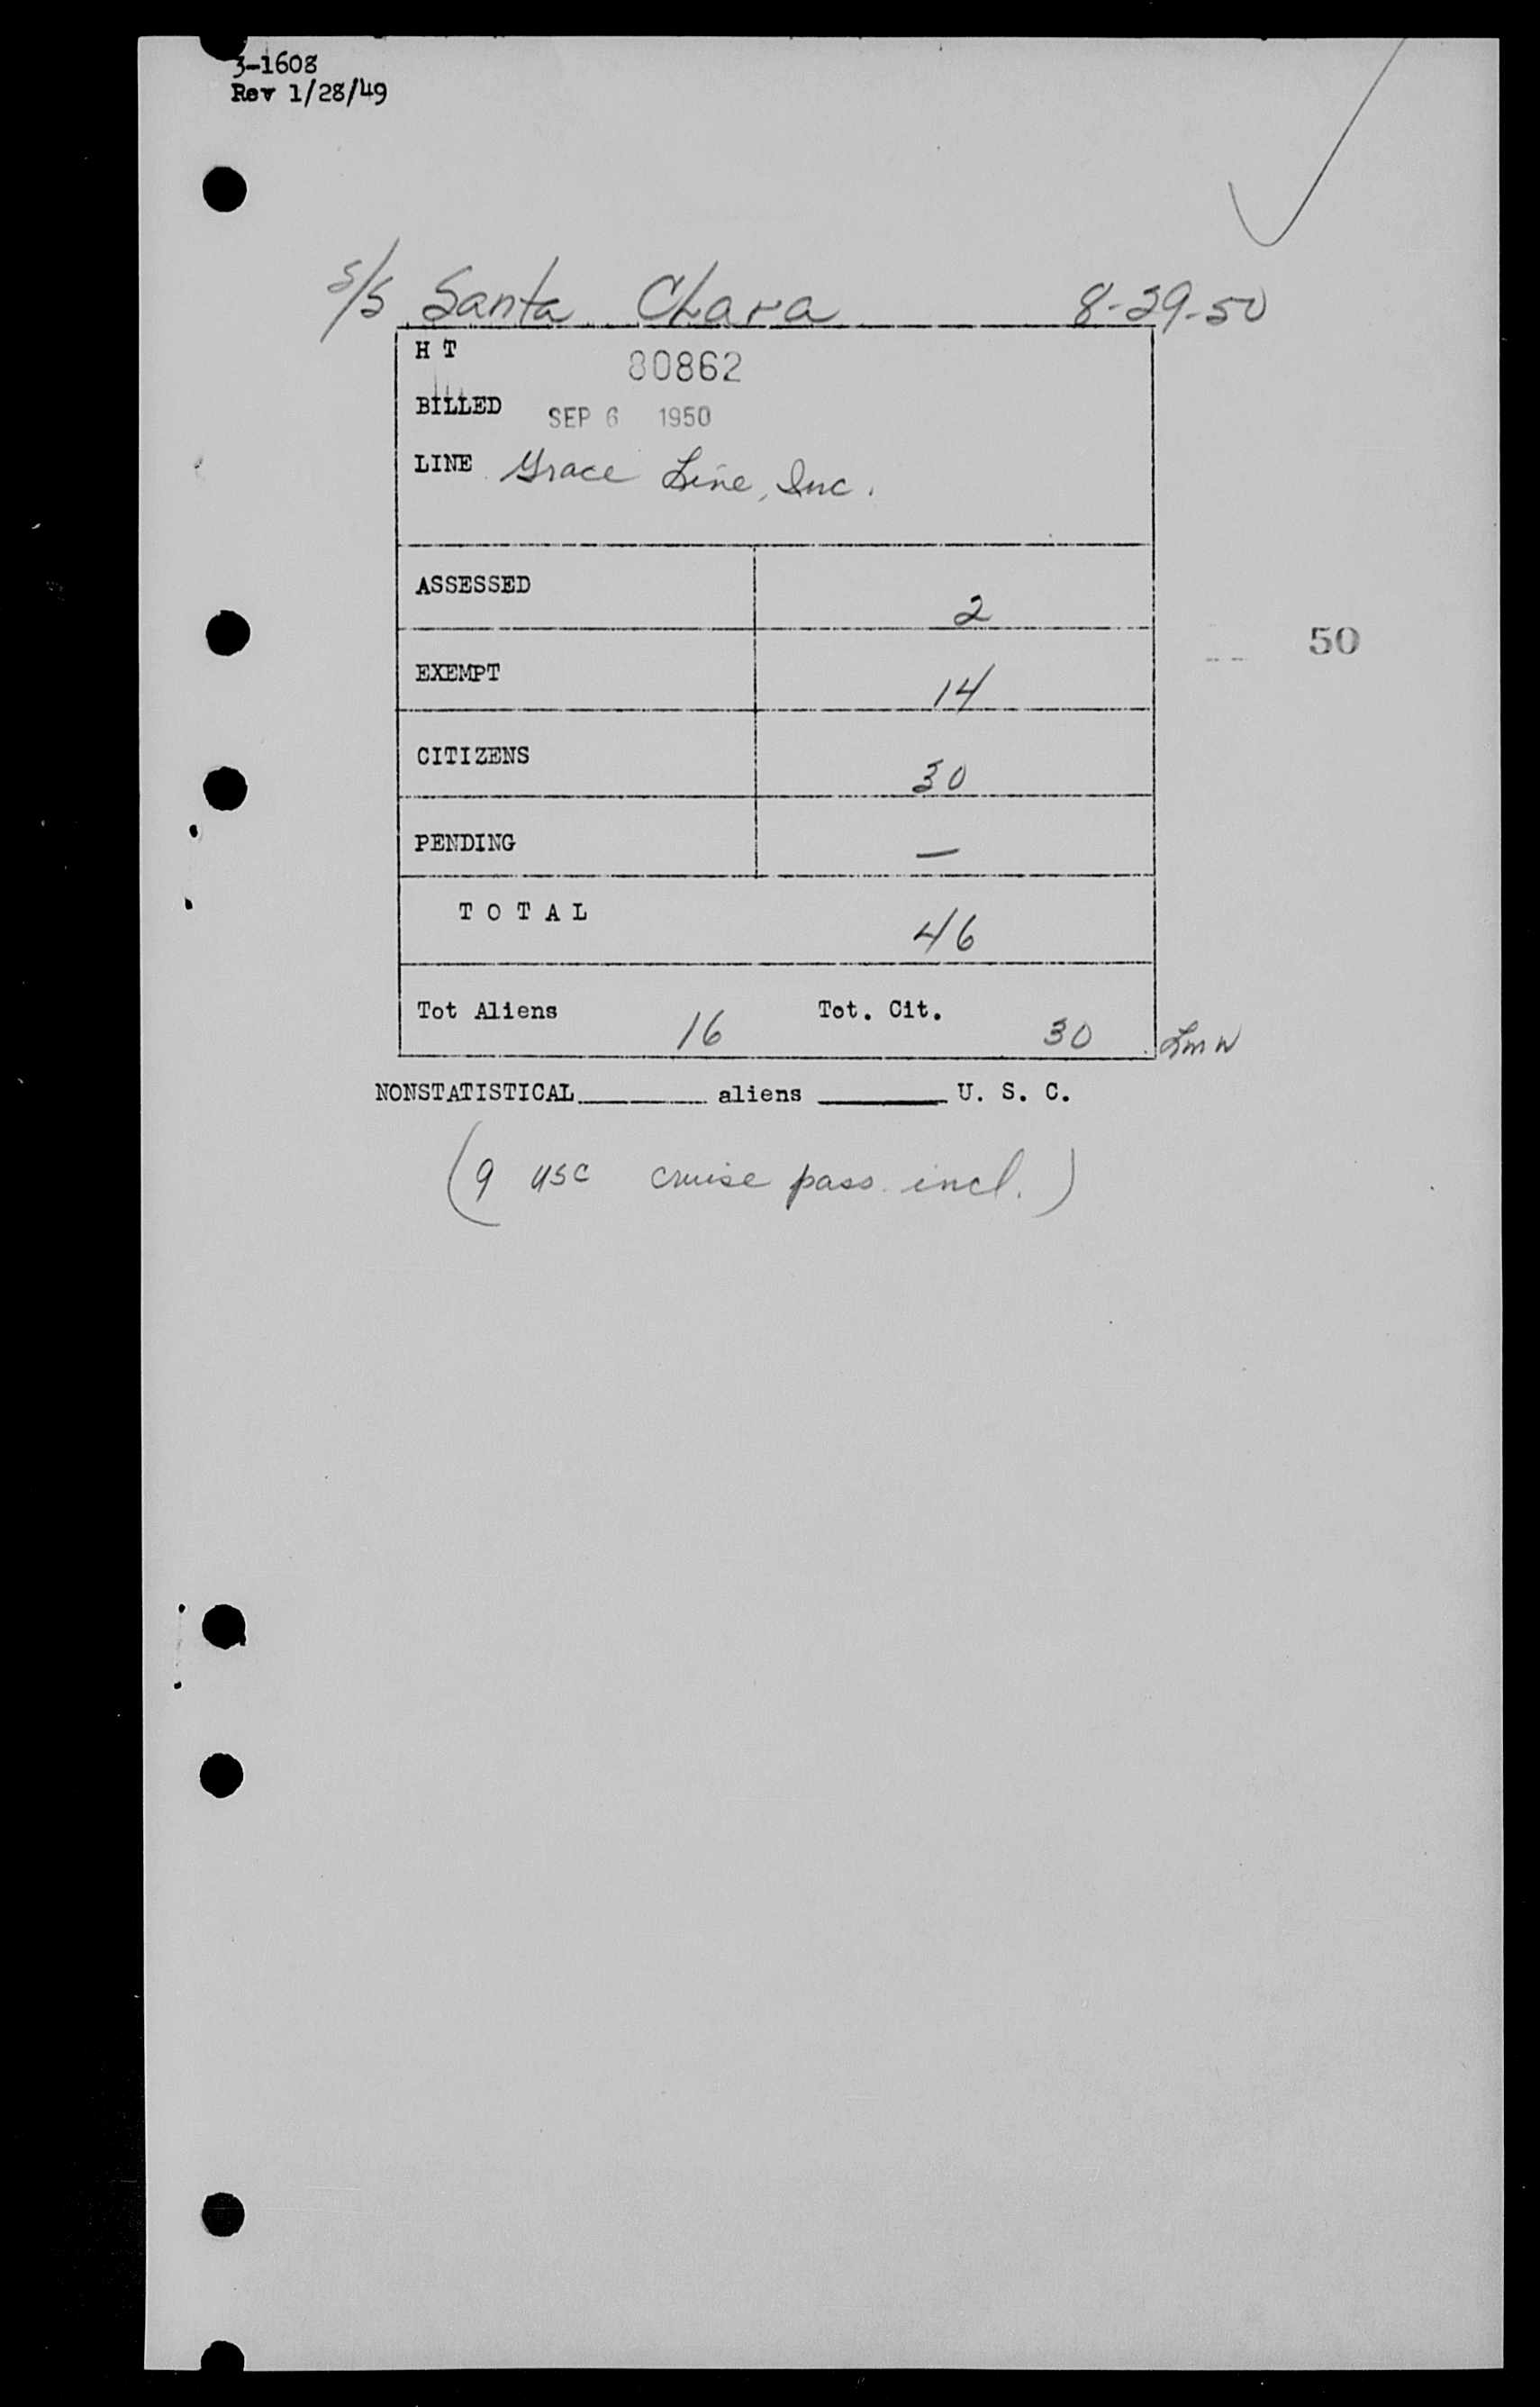 3-1608
Rev 1/28/49
S/S Santa Clara 8-29-50
H T 80862
BILLED SEP 6 1950
LINE Grace Line, Inc.
ASSESSED 2
50
EXEMPT 14
CITIZENS 30
PENDING —
TOTAL 46
Tot Aliens 16 Tot. Cit. 30 LMW
NONSTATISTICAL______ aliens ______ U. S. C.
(9 USC cruise pass. incl.)